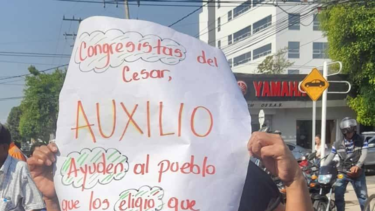 Congresistas del
Cesar,
AUXILIO
Ayuden al pueblo
que los eligió que
YAMAHA